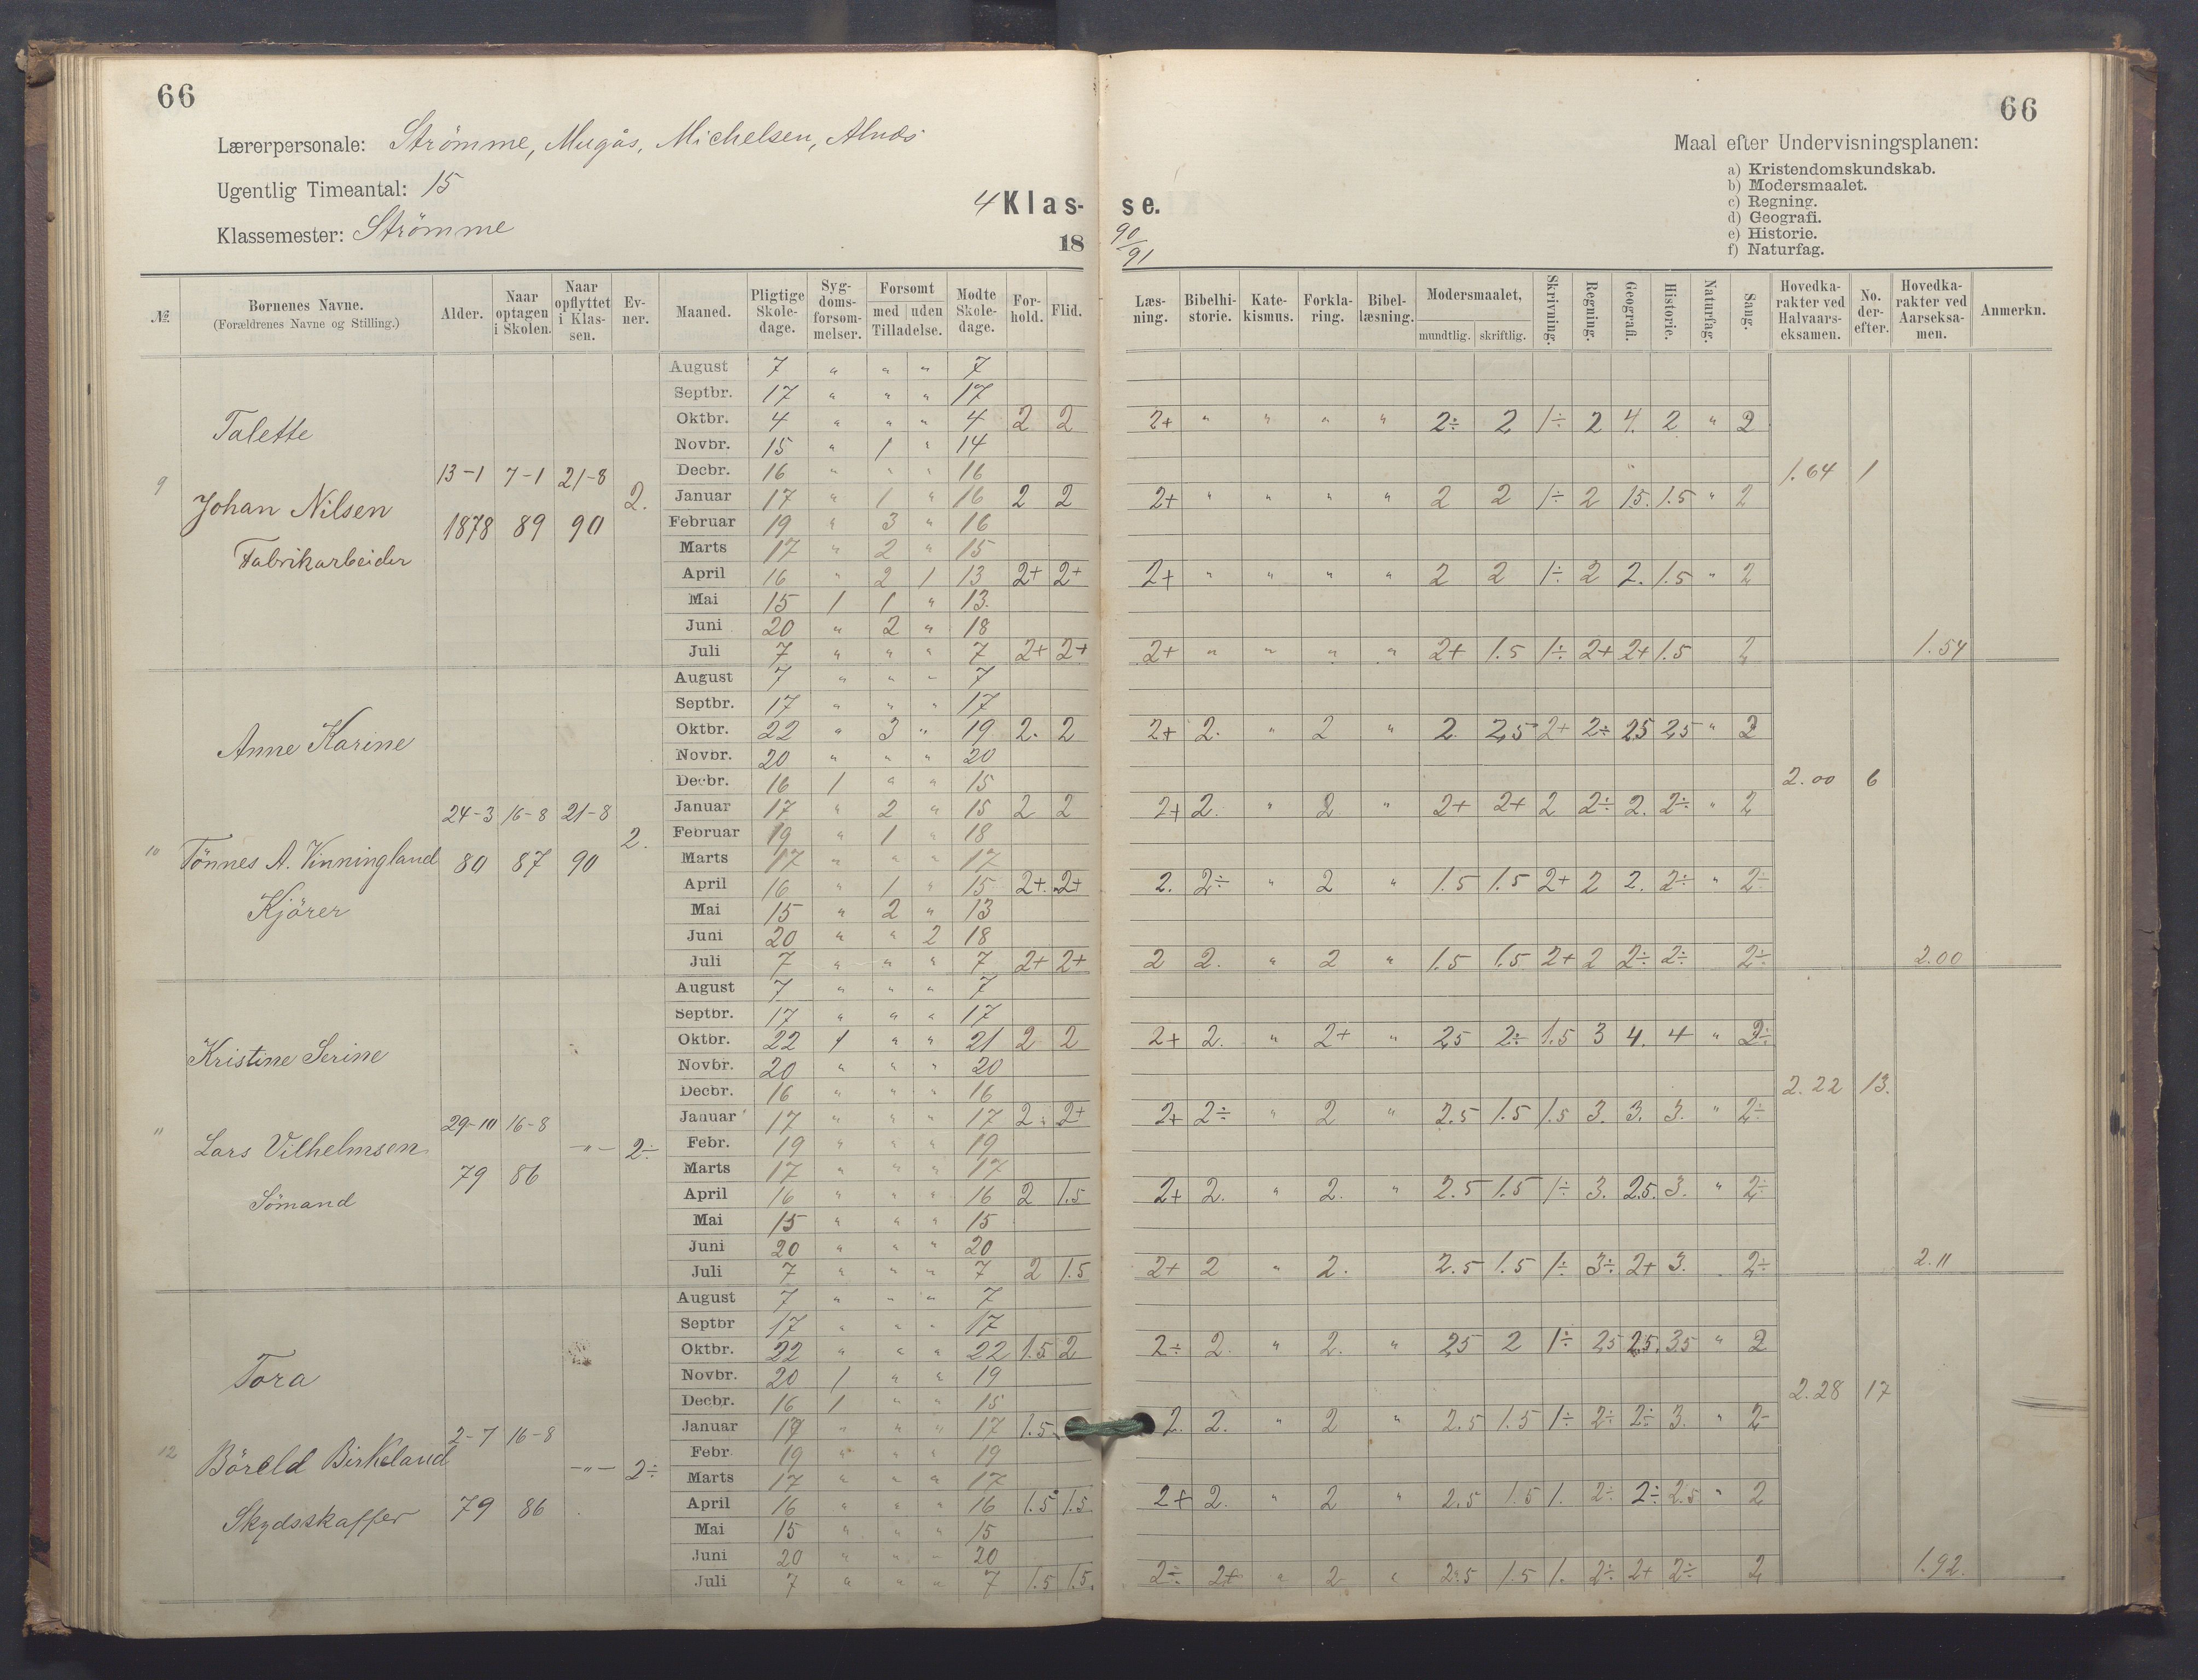 66
66
Lærerpersonale: Strömme, Mugås, Michelsen, Alnæs
Ugentlig Timeantal: 15
Klassemester: Strömme
4 Klasse.
18 90/91
Maal efter Undervisningsplanen:
a) Kristendomskundskab.
b) Modersmaalet.
c) Regning.
d) Geografi.
e) Historie.
f) Naturfag.
№ | Børnenes Navne. (Forældrenes Navne og Stilling.) | Alder. | Naar optagen i Skolen. | Naar opflyttet i Klassen. | Evner. | Maaned. | Pligtige Skoledage. | Sygdomsforsømmelser. | Forsømt med uden Tilladelse. | Mødte Skoledage. | Forhold. | Flid. | Læsning. | Bibelhistorie. | Katekismus. | Forklaring. | Bibellæsning. | Modersmaalet, mundtlig. skriftlig. | Skrivning. | Regning. | Geografi. | Historie. | Naturfag. | Sang. | Hovedkarakter ved Halvaarseksamen. | No. derefter. | Hovedkarakter ved Aarseksamen. | Anmerkn.
9 Talette
Johan Nilsen
Fabrikarbeider
13-1 1878 | 7-1 89 | 21-8 90 | 2.
August 7 " " " 7
Septbr. 17 " " " 17
Oktbr. 4 " " " 4 2 2 | 2+ " " " " 2÷ 2 1÷ 2 4. 2 " 2
Novbr. 15 " 1 " 14
Decbr. 16 " " " 16 | 1.64 1
Januar 17 " 1 " 16 2 2 | 2+ " " " " 2 2 1÷ 2 15. 1.5 " 2
Februar 19 " 3 " 16
Marts 17 " 2 " 15
April 16 " 2 1 13 2+ 2+ | 2+ " " " " 2 2 1÷ 2 2. 1.5 " 2
Mai 15 1 1 " 13.
Juni 20 " 2 " 18
Juli 7 " " " 7 2+ 2+ | 2+ " " " " 2+ 1.5 1÷ 2+ 2+ 1.5 2 | 1.54
10 Anne Karine
Tönnes A. Vinningland
Kjörer
24-3 80 | 16-8 87 | 21-8 90 | 2.
August 7 " " " 7
Septbr. 17 " " " 17
Oktbr. 22 " 3 " 19 2. 2 | 2+ 2. " 2 " 2 2,5 2+ 2÷ 2.5 2.5 " 2
Novbr. 20 " " " 20
Decbr. 16 1 " " 15 | 2.00 6
Januar 17 " 2 " 15 2 2 | 2+ 2. " 2 " 2+ 2+ 2 2÷ 2. 2÷ " 2
Februar 19 " 1 " 18
Marts 17 " " " 17
April 16 " 1 " 15 2+ 2+ | 2. 2÷ " 2 " 1.5 1.5 2+ 2 2. 2÷ " 2÷
Mai 15 " 2 " 13
Juni 20 " " 2 18
Juli 7 " " " 7 2+ 2+ | 2 2. " 2 " 1.5 1.5 2+ 2 2÷ 2÷ 2÷ | 2.00
" Kristine Serine
Lars Vilhelmsen
Sömand
29-10 79 | 16-8 86 | -"- | 2÷
August 7 " " " 7
Septbr. 17 " " " 17
Oktbr. 22 1 " " 21 2 2 | 2+ 2. " 2+ " 2.5 2÷ 1.5 3 4. 4 " 2÷
Novbr. 20 " " " 20
Decbr. 16 " " " 16 | 2.22 13.
Januar 17 " " " 17 2÷ 2+ | 2+ 2÷ " 2 " 2.5 1.5 1.5 3. 3. 3. " 2÷
Febr. 19 " " " 19
Marts 17 " " " 17
April 16 " " " 16 2 1.5 | 2+ 2. " 2. " 2.5 1.5 1÷ 3. 2.5. 3. " 2÷
Mai 15 " " " 15
Juni 20 " " " 20
Juli 7 " " " 7 2 1.5 | 2+ 2 " 2. 2.5 1.5 1÷ 3÷ 2+ 3. 2÷ | 2.11
12 Tora
Böreld Birkeland
Skydsskaffer
2-7 79 | 16-8 86 | -"- | 2÷
August 7 " " " 7
Septbr 17 " " " 17
Oktbr. 22 " " " 22 1.5 2 | 2÷ 2. " 2. " 2.5 2 1÷ 2.5 2.5. 3.5 " 2
Novbr. 20 1 " " 19
Decbr. 16 1 " " 15 | 2.28 17
Januar 17 " " " 17 1.5 | 2. 2. " 2 " 2.5 1.5 1÷ 2÷ 2÷ 3. " 2-
Febr. 19 " " " 19
Marts 17 " " " 17
April 16 " " " 16 1.5 1.5 | 2+ 2. " 2 " 2.5 1.5 1. 2÷ 2÷ 2.5 " 2
Mai 15 " " " 15
Juni 20 " " " 20
Juli 7 " " " 7 1.5 1.5. | 2÷ 2+ " 2 " 2.5 1.5 1. 2÷ 2+ 2÷ 2 | 1.92.